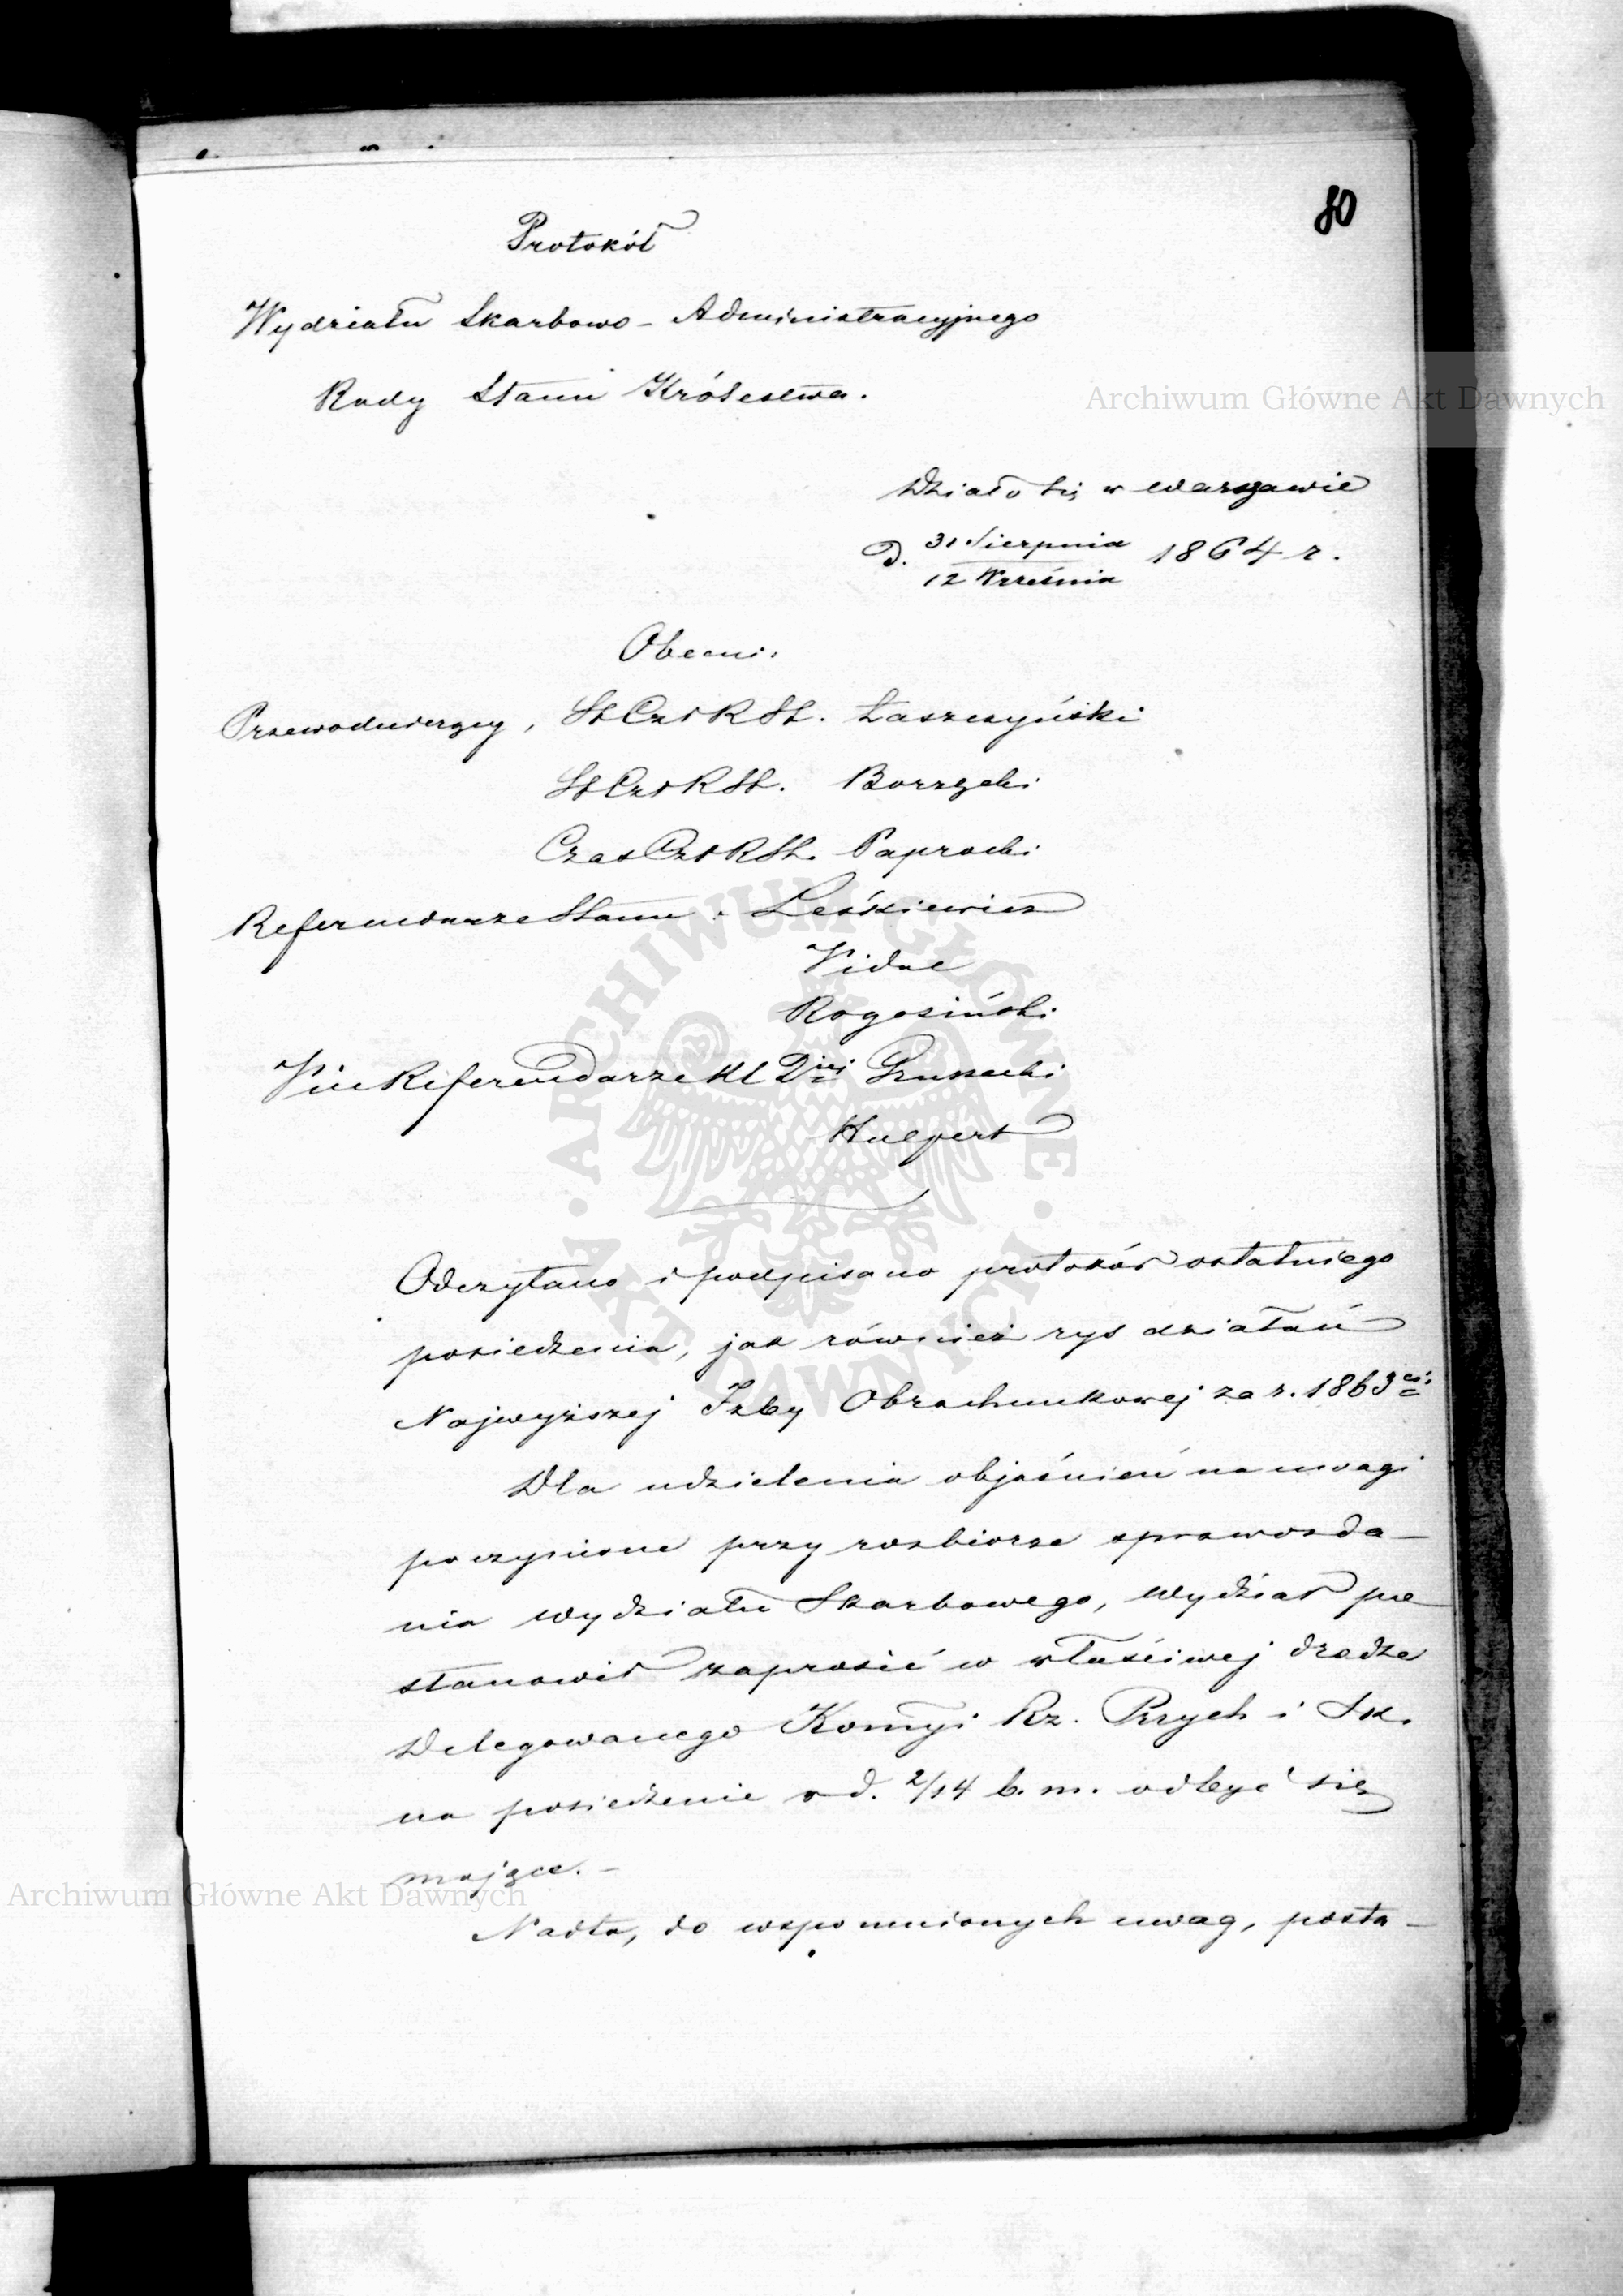 80
Protokół
Wydziału Skarbowo-Administracyjnego
Rady Stanu Królestwa.
Działo się w Warszawie
D. 31 Sierpnia 1864 r.
12 Września
Obecni:
Przewodniczący, St Czł R St. Łaszczyński
St Czł R St. Borzęcki
Czas Czł R St. Paprocki
Referendarze Stanu: Leśkiewicz
Vidal
Rogosiński
Vice Referendarze Kl Dⁱᵉʲ Gruszecki
Halpert
Odczytano i podpisano protokół ostatniego
posiedzenia, jak również rys działań
Najwyższej Izby Obrachunkowej za r. 1863
Dla udzielenia objaśnień na uwagi
poczynione przy rozbiorze sprawozda-
nia Wydziału Skarbowego, Wydział po-
stanowił zaprosić w właściwej drodze
Delegowanego Komyi Rz. Przych i Sk.
na posiedzenie w d. 2/14 b. m. odbyć się
mające. -
Nadto, do wspomnionych uwag, posta-
Archiwum Główne Akt Dawnych
ARCHIWUM GŁÓWNE AKT DAWNYCH
Archiwum Główne Akt Dawnych